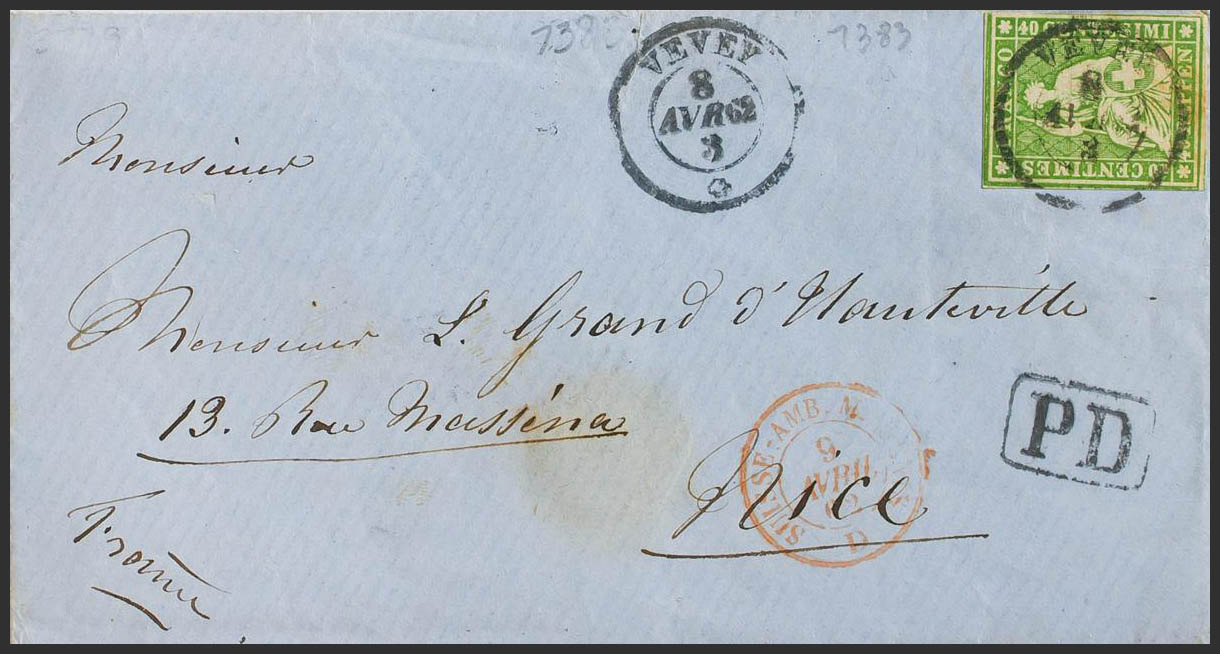 1383
VEVEY
8
AVR 62
3
1383
40 CENTESIMI
40 RAPPEN
40 CENTIMES
VEVEY
8
3
Monsieur
Monsieur L. Grand d'Hauteville
13. Rue Masséna
Nice
France
SUISSE-AMB. M.
9
AVRIL
62
D
PD